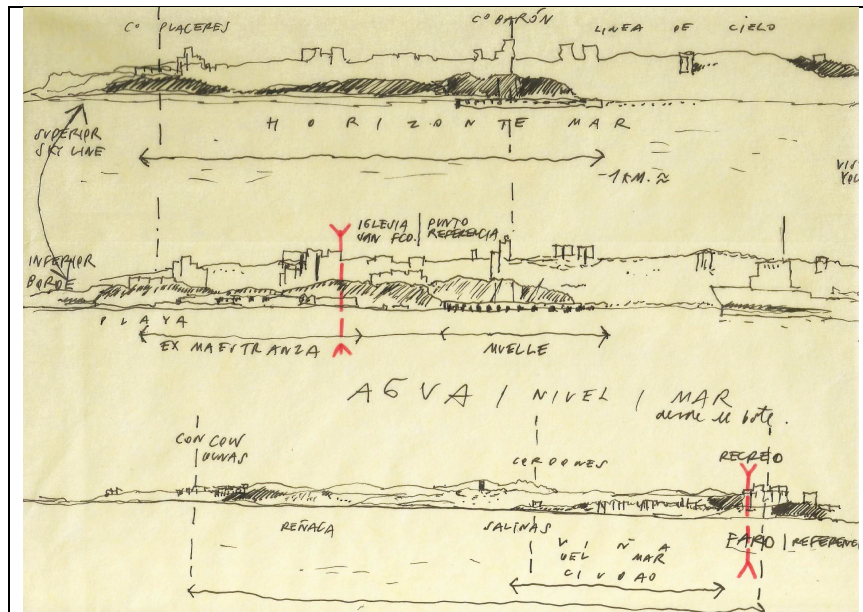 Cº PLACERES
Cº BARÓN
LINEA DE CIELO
SUPERIOR
SKY LINE
HORIZONTE MAR
~1 KM. ≈
IGLESIA | PUNTO
SAN FCO. | REFERENCIA
INFERIOR
BORDE
PLAYA
EX MAESTRANZA
MUELLE
AGUA / NIVEL / MAR
desde el bote.
CON CON
DUNAS
CORDONES
RECREO
REÑACA
SALINAS
VIÑA
DEL MAR
CIUDAD
FARO | REFERENCI